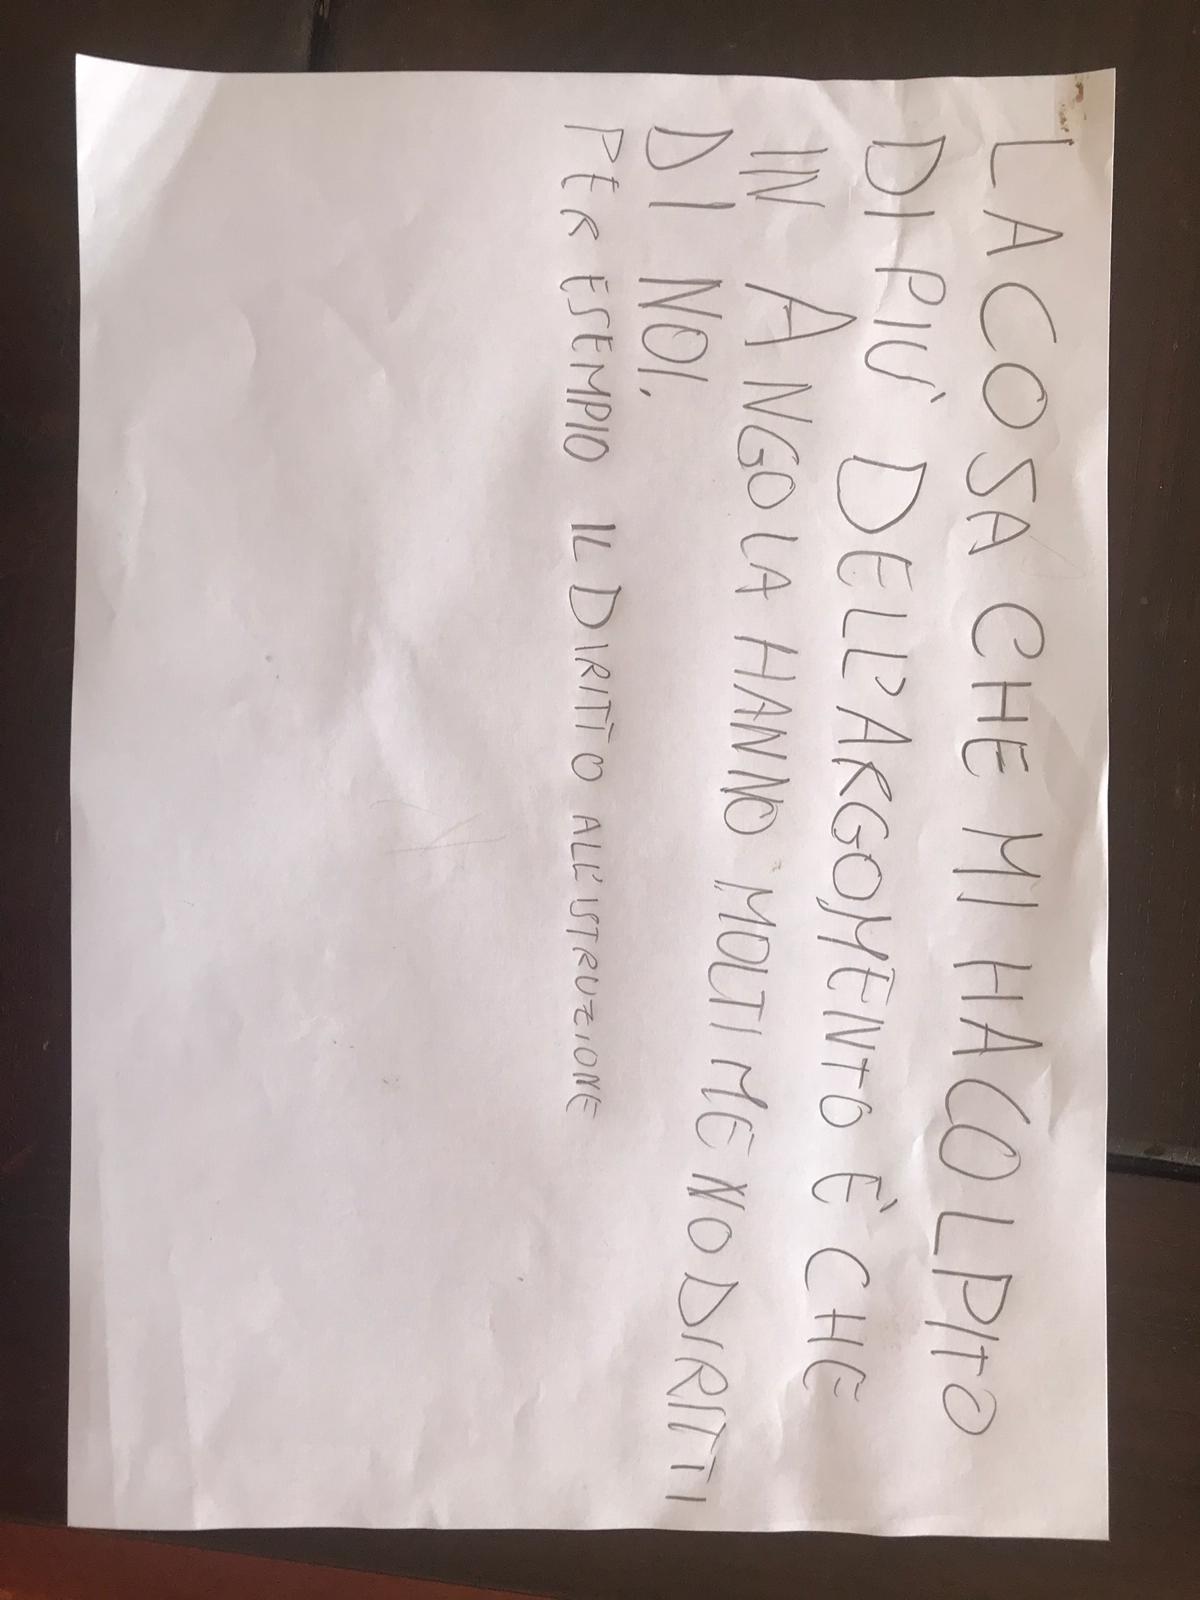 LA COSA CHE MI HA COLPITO
DI PIU' DELL'ARGOMENTO E' CHE
IN ANGOLA HANNO MOLTI MENO DIRITTI
DI NOI,
PER ESEMPIO IL DIRITTO ALL'ISTRUZIONE